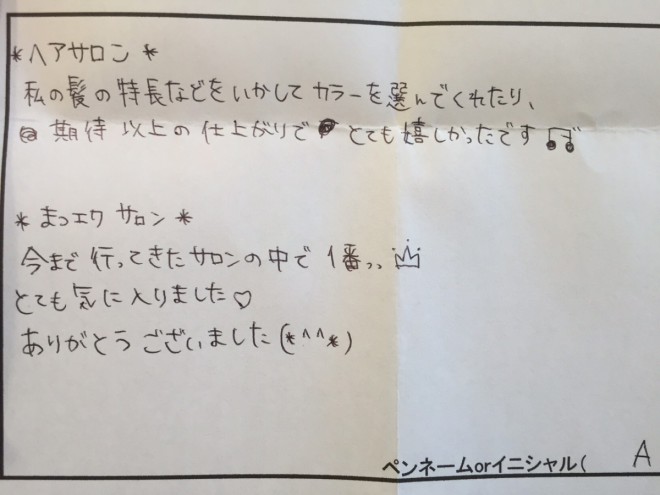 *ヘアサロン*
私の髪の特長などをいかしてカラーを選んでくれたり、
期待以上の仕上がりで とても嬉しかったです♫
*まつエクサロン*
今まで行ってきたサロンの中で1番っっ
とても気に入りました♡
ありがとうございました(*^^*)
ペンネームorイニシャル( A